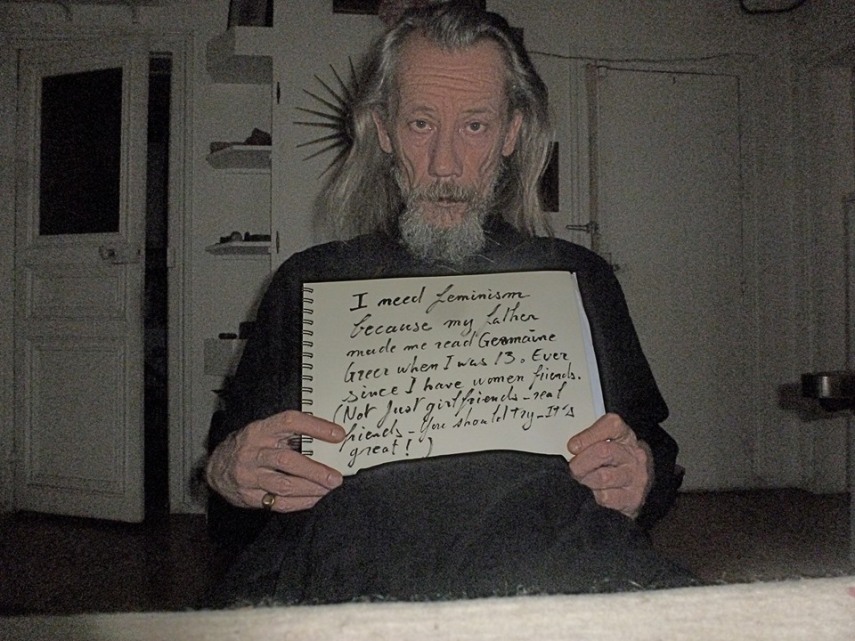 I need feminism
because my father
made me read Germaine
Greer when I was 13. Ever
since I have women friends.
(Not just girlfriends - real
friends - You should try - It's
great!)